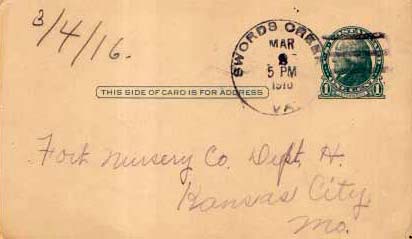 3/4/16.
SWORDS CREEK
MAR
5 PM
1916
VA.
1 1
THIS SIDE OF CARD IS FOR ADDRESS
Fort Nursery Co. Dept. H.
Kansas City,
Mo.